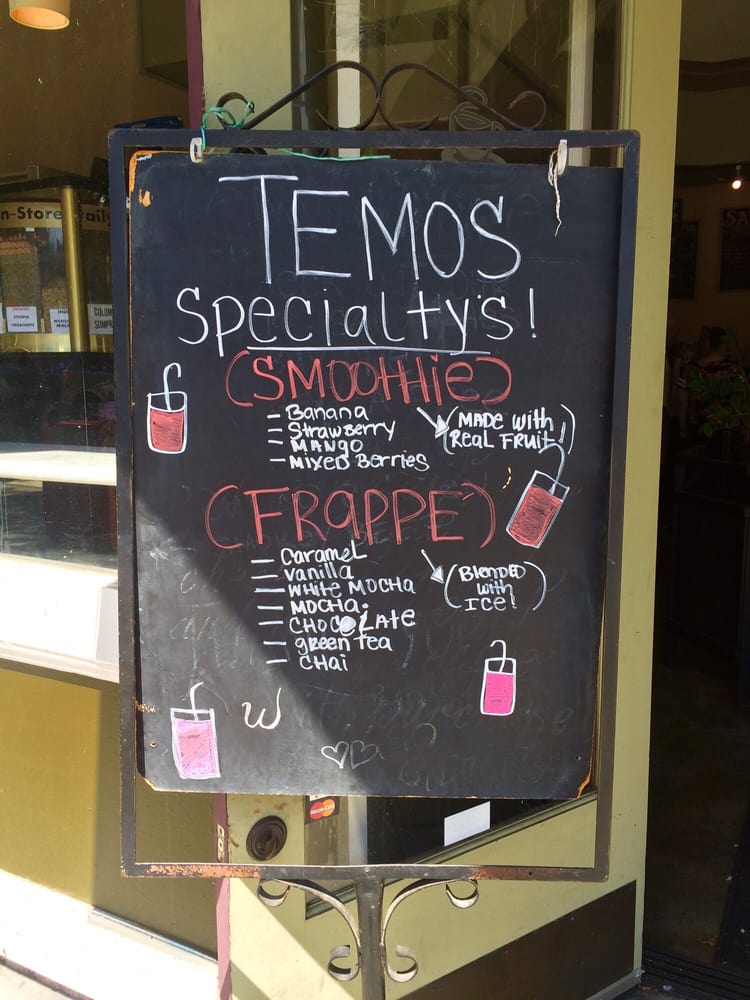 TEMOS
Specialty's!
(SMOOTHIE)
- Banana
- Strawberry
- MANGO
- Mixed Berries
(MADE with
Real FRUIT!)
(FRAPPE)
- CARAMEL
- Vanilla
- WHITE MOCHA
- MOCHA.
- CHOCOLATE
- green Tea
- CHai
(Blended
with
ICE!)
W
n-Store
aily
COLOM
SUMPR
MasterCard